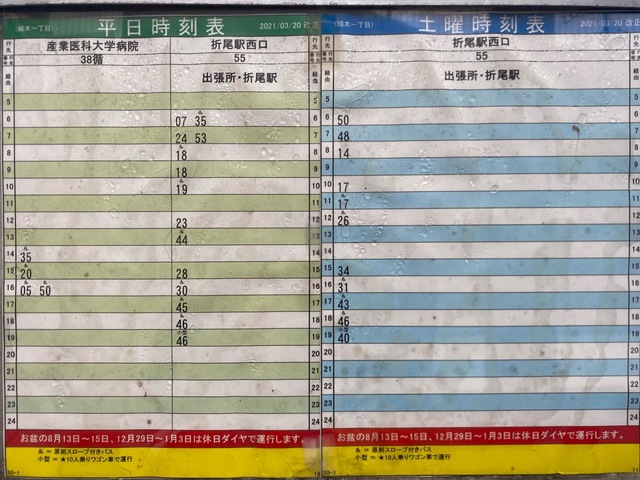 (楠木一丁目) 平日時刻表 2021/03/20 改正
行先 産業医科大学病院 折尾駅西口 行先
38循 55
経由 出張所・折尾駅 経由
5 5
6 07 &35 6
7 24 53 7
8 &18 8
9 18 9
10 &19 10
11 11
12 23 12
13 &44 13
14 &35
15 &20 28 15
16 &05 &50 &30 16
17 &45 17
18 &46 18
19 小型46 19
20 20
21 21
22 22
23 23
24 24
お盆の8月13日~15日、12月29日~1月3日は休日ダイヤで運行します。
& = 原則スロープ付きバス
小型 = ★10人乗りワゴン車で運行
(楠木一丁目) 土曜時刻表 2021/03/20 改正
行先 折尾駅西口 行先
55
経由 出張所・折尾駅 経由
5 5
6 50 6
7 48 7
8 14 8
9 9
10 17 10
11 &17 11
12 &26 12
13 13
14 14
15 34 15
16 &31 16
17 &43 17
18 &46 18
19 小型40 19
20 20
21 21
22 22
23 23
24 24
お盆の8月13日~15日、12月29日~1月3日は休日ダイヤで運行します。
& = 原則スロープ付きバス
小型 = ★10人乗りワゴン車で運行